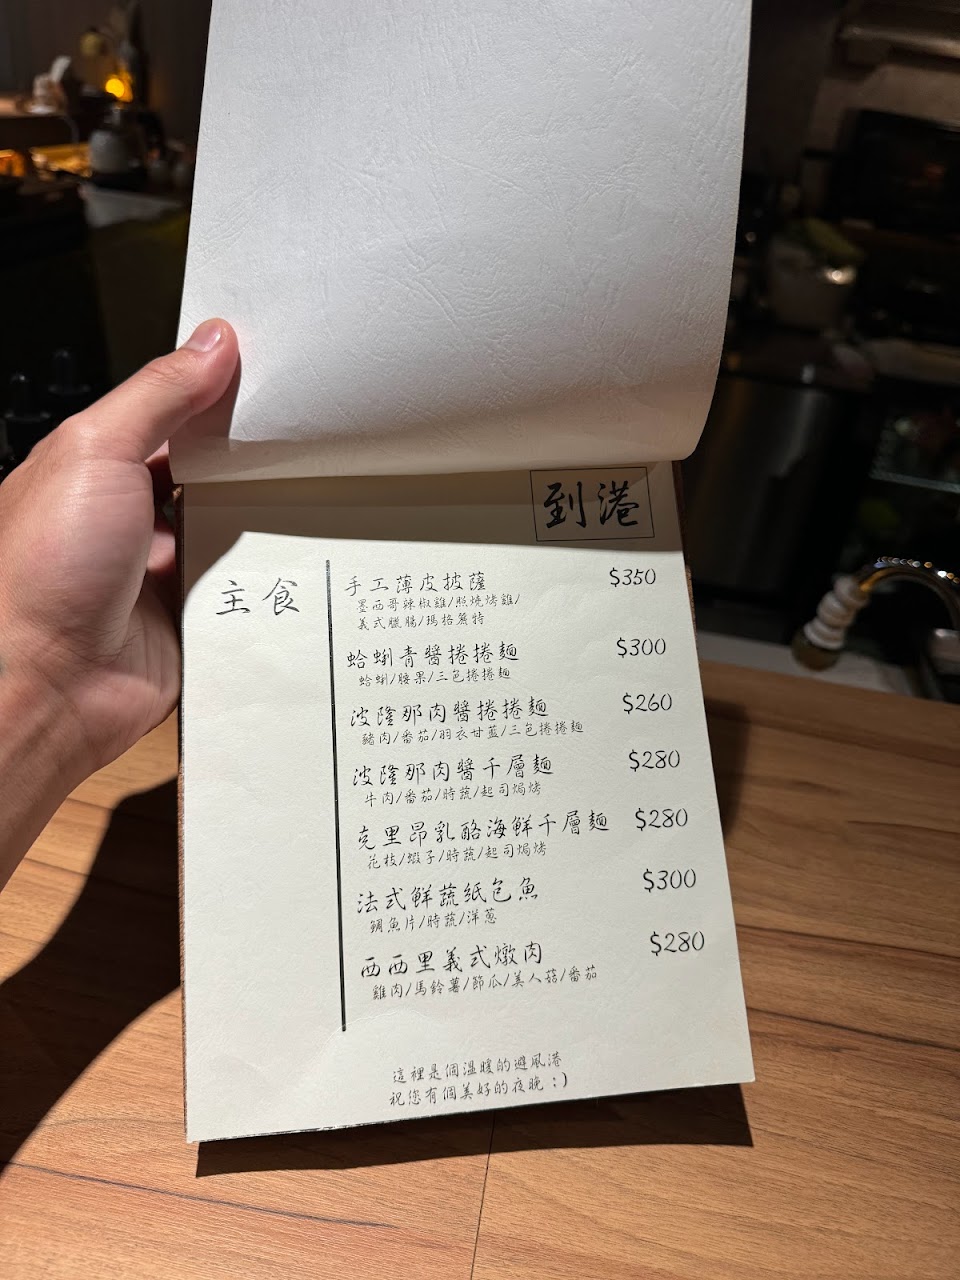 到港
主食
手工薄皮披薩 $350
墨西哥辣椒雞/照燒烤雞/
義式臘腸/瑪格麗特
蛤蜊青醬捲捲麵 $300
蛤蜊/腰果/三色捲捲麵
波隆那肉醬捲捲麵 $260
豬肉/番茄/羽衣甘藍/三色捲捲麵
波隆那肉醬千層麵 $280
牛肉/番茄/時蔬/起司焗烤
克里昂乳酪海鮮千層麵 $280
花枝/蝦子/時蔬/起司焗烤
法式鮮蔬紙包魚 $300
鯛魚片/時蔬/洋蔥
西西里義式燉肉 $280
雞肉/馬鈴薯/節瓜/美人菇/番茄
這裡是個溫暖的避風港
祝您有個美好的夜晚 :)